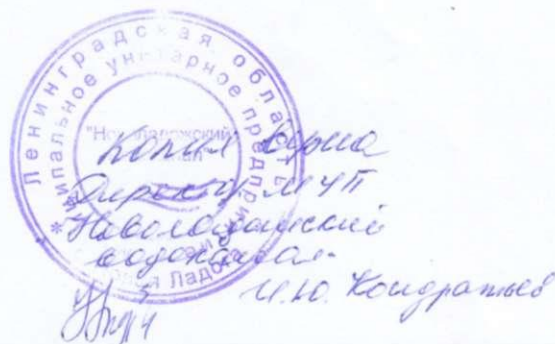 Ленинградская область
Муниципальное унитарное предприятие
"Новоладожский
Копия верна
Директор МУП
Новоладожский
водоканал
И.Ю. Кондратьев